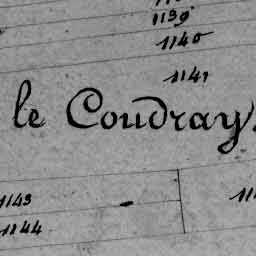 1139
1140
1141
le Coudray
1143
1144